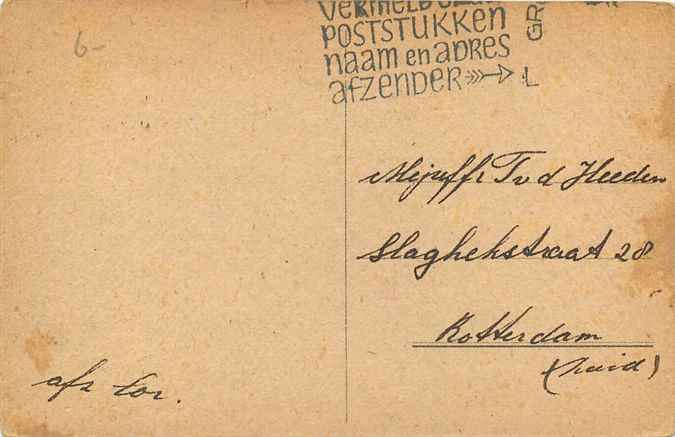 6-
VERMELD
POSTSTUKKEN
naam en ADRES
afzender
GR
L
Mejuffr T v d Heeden
Slaghekstraat 28
Rotterdam
(Zuid)
afz Cor.